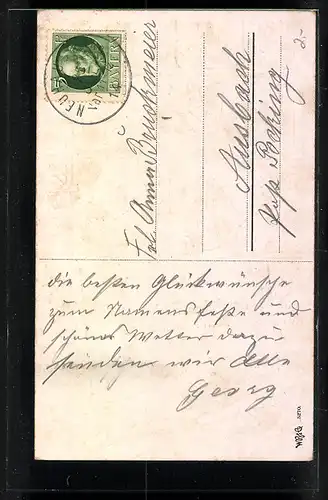 Frl Anna Bruckmeier
Ausbach
Post Pocking
BAYERN
NEU
die besten Glückwünsche
zum Namensfeste und
schönes Wetter dazu
senden wir Alle
Georg
2.-